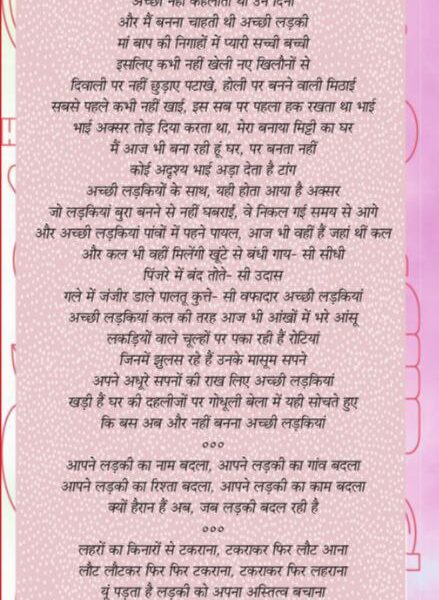 अच्छा नहीं कहलाता था उन दिनों
और मैं बनना चाहती थी अच्छी लड़की
मां बाप की निगाहों में प्यारी सच्ची बच्ची
इसलिए कभी नहीं खेली नए खिलौनों से
दिवाली पर नहीं छुड़ाए पटाखे, होली पर बनने वाली मिठाई
सबसे पहले कभी नहीं खाई, इस सब पर पहला हक रखता था भाई
भाई अक्सर तोड़ दिया करता था, मेरा बनाया मिट्टी का घर
मैं आज भी बना रही हूं घर, पर बनता नहीं
कोई अदृश्य भाई अड़ा देता है टांग
अच्छी लड़कियों के साथ, यही होता आया है अक्सर
जो लड़कियां बुरा बनने से नहीं घबराईं, वे निकल गईं समय से आगे
और अच्छी लड़कियां पांवों में पहने पायल, आज भी वहीं हैं जहां थीं कल
और कल भी वहीं मिलेंगी खूंटे से बंधी गाय- सी सीधी
पिंजरे में बंद तोते- सी उदास
गले में जंजीर डाले पालतू कुत्ते- सी वफादार अच्छी लड़कियां
अच्छी लड़कियां कल की तरह आज भी आंखों में भरे आंसू
लकड़ियों वाले चूल्हों पर पका रही हैं रोटियां
जिनमें झुलस रहे हैं उनके मासूम सपने
अपने अधूरे सपनों की राख लिए अच्छी लड़कियां
खड़ी हैं घर की दहलीजों पर गोधूली बेला में यही सोचते हुए
कि बस अब और नहीं बनना अच्छी लड़कियां
०००
आपने लड़की का नाम बदला, आपने लड़की का गांव बदला
आपने लड़की का रिश्ता बदला, आपने लड़की का काम बदला
क्यों हैरान हैं अब, जब लड़की बदल रही है
०००
लहरों का किनारों से टकराना, टकराकर फिर लौट आना
लौट लौटकर फिर फिर टकराना, टकराकर फिर लहराना
यूं पड़ता है लड़की को अपना अस्तित्व बचाना